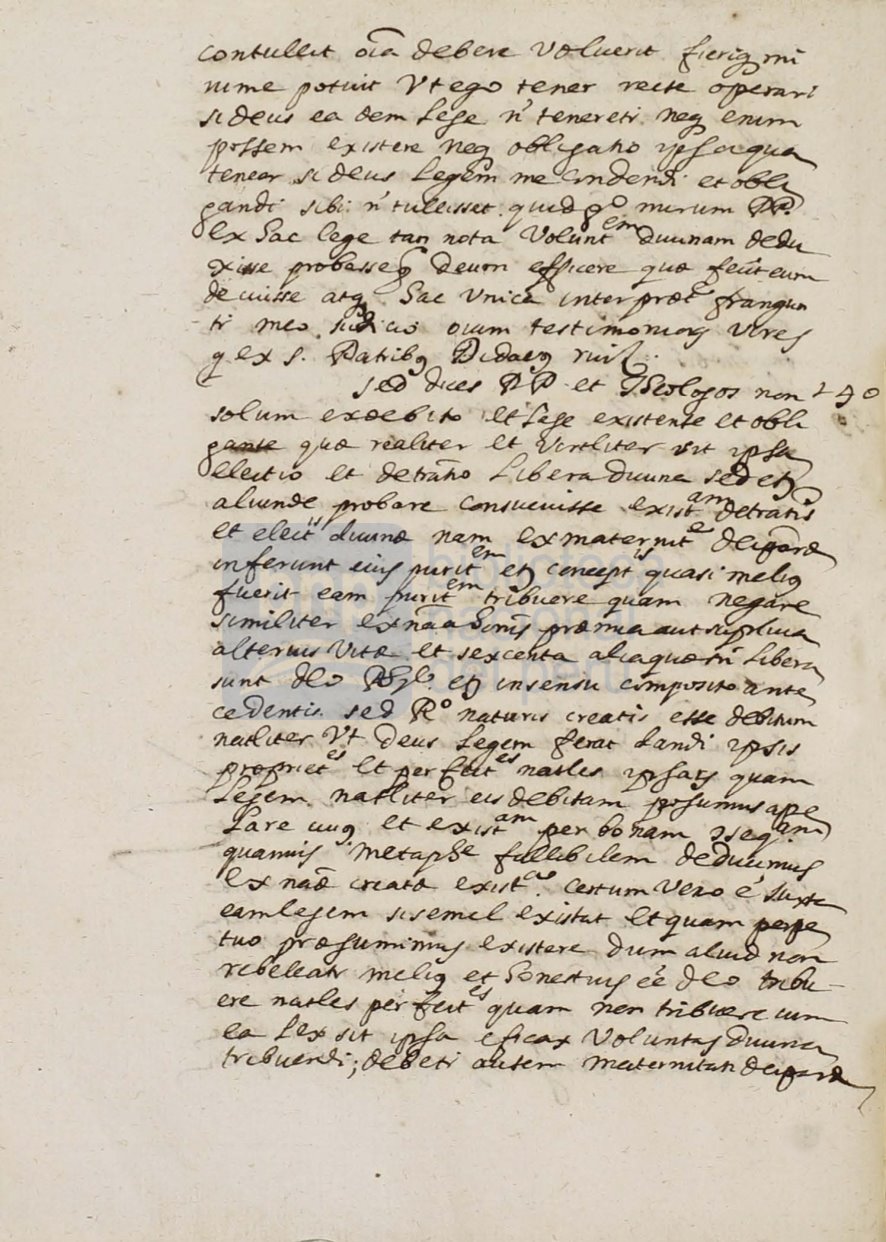 contullit oĩa debere voluerit fieriq mi
nime potuit Vt ego tener recte operari
si deus ea dem lege n̄ teneretr. neq enim
possem existere neq obligatio ipsa qua
teneor si deus legem me condendi et obli
gandi sibi n̄ tullisset. quid gº mirum PP.
ex hac lege tan nota Volunt em diuinam dedu
xisse probasseq deum efficere quæ fecit eum
decuisse atq hac Vnica interpræt frangun
tr meo judicio oium testimonioq vires
q ex s. Patribq Didacq
Sed dices PP et Theologos non 240
solum ex debito et lege existente et obli
gante quæ realiter et virtliter sit ipsa
electio et detratio libera diuina sed etq
aliunde probare consueuisse existam detratis
et elect is diuinæ nam ex maternit e deiparæ
inferunt eiq puritem etq concept is quasi meliq
fuerit eam puritem tribuere quam negare
similiter ex nāa hominis præmia aut suplicia
alterius Vitæ et sexcenta alia quæ tn libera
sunt deo etq in sensu composito ante
cedentis. sed Rº naturis creatis esse debitum
natliter Vt Deus legem ferat dandi ipsis
propriet es et perfect es natles ipsarq quam
Legem natliter eis debitam possumus ape
lare et existam per bonam
quamuis metaphe fallibilem deducimus
ex naæ creatæ exist a. certum vero ē juxta
eam legem si semel existat et quam perpe
tuo præsumimus existere dum aliud non
rebeleatr meliq et honestius ēe deo tribu-
ere natles perfectes quam non tribuere cum
ea Lex sit ipsa eficax Voluntas diuina
tribuendi; debetr autem maternitati deiparæ
biblioteca